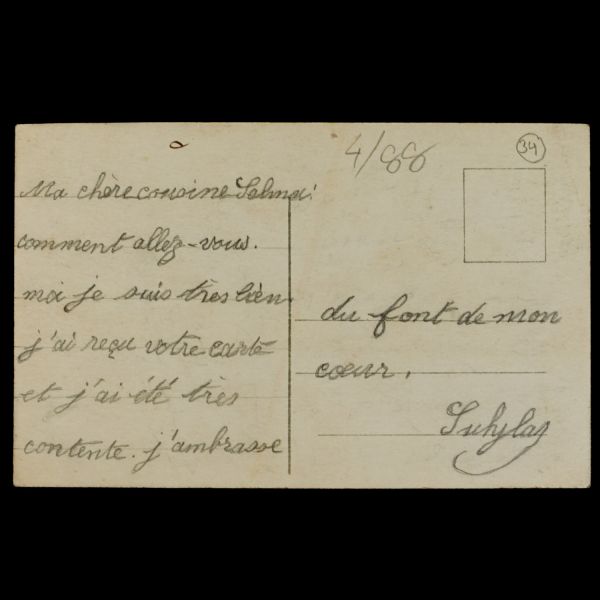 4/88
34
Ma chère cousine Selma!
comment allez-vous.
moi je suis très bien.
j'ai reçu votre carte
et j'ai été très
contente. j'ambrasse
du font de mon
coeur.